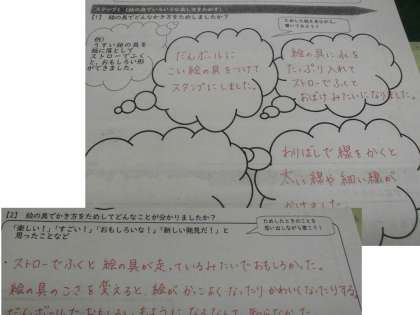 ステップ1 【絵の具でいろいろな表し方をためす】
【1】 絵の具でどんなかき方をためしましたか？
ためした紙を見ながら、
書いてみよう！
例）
うすい絵の具を
紙に落として
ストローでふく
と、おもしろい形
ができました。
だんボールに
こい絵の具をつけて
スタンプにしました。
絵の具に水を
たっぷり入れて
ストローでふくと
おばけみたいになりました。
わりばしで線をかくと
太い線や細い線が
かけました。
【2】 絵の具でかき方をためしてどんなことが分かりましたか？
「楽しい！」「すごい！」「おもしろいな！」「新しい発見だ！」と
思ったことなど
ためしたときのことを
思い出しながら書こう！
・ストローでふくと絵の具が走っているみたいでおもしろかった。
絵の具のこさを変えると、絵がかっこよくなったりかわいくなったりする。